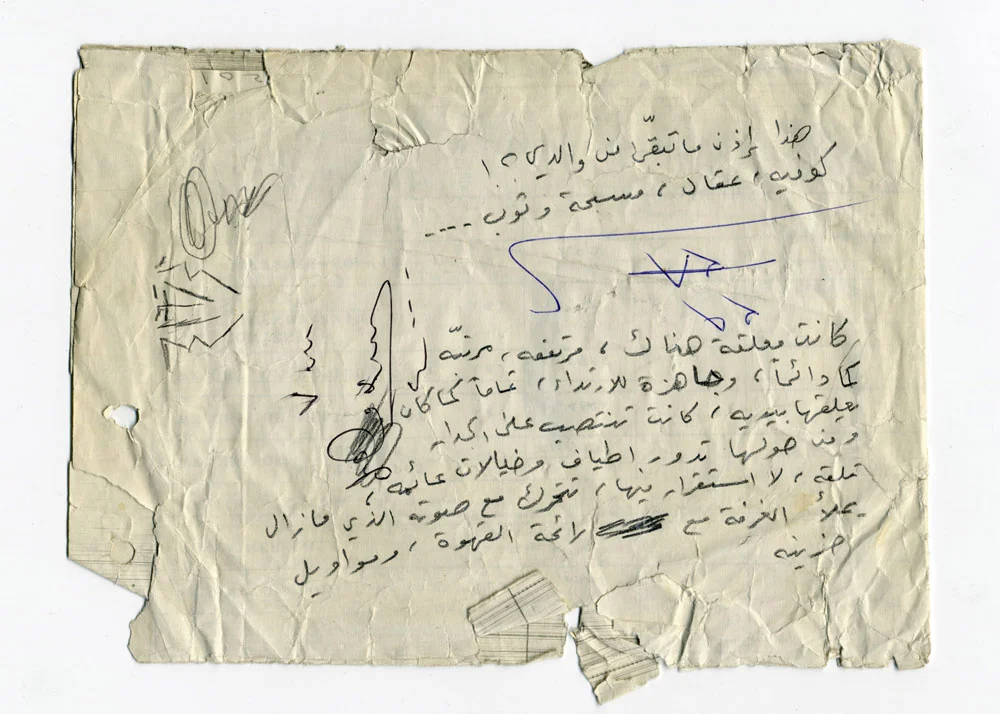 هذا إذن ما تبقّى من والدي ؟!
كوفيه، عقال، مسبحة وثوب ....
كانت معلقة هناك، مرتفعه، مرتبّه
كما دائماً، وجاهزة للارتداء، تماماً كما كان
يعلقها بيديه، كانت تنتصب على الجدار
ومن حولها تدور اطياف وخيالات عائمه،
قلقه، لا استقرار فيها، تتحرك مع صوته الذي مازال
يملأ الغرفة مع رائحة القهوة، ومواويل
حزينه